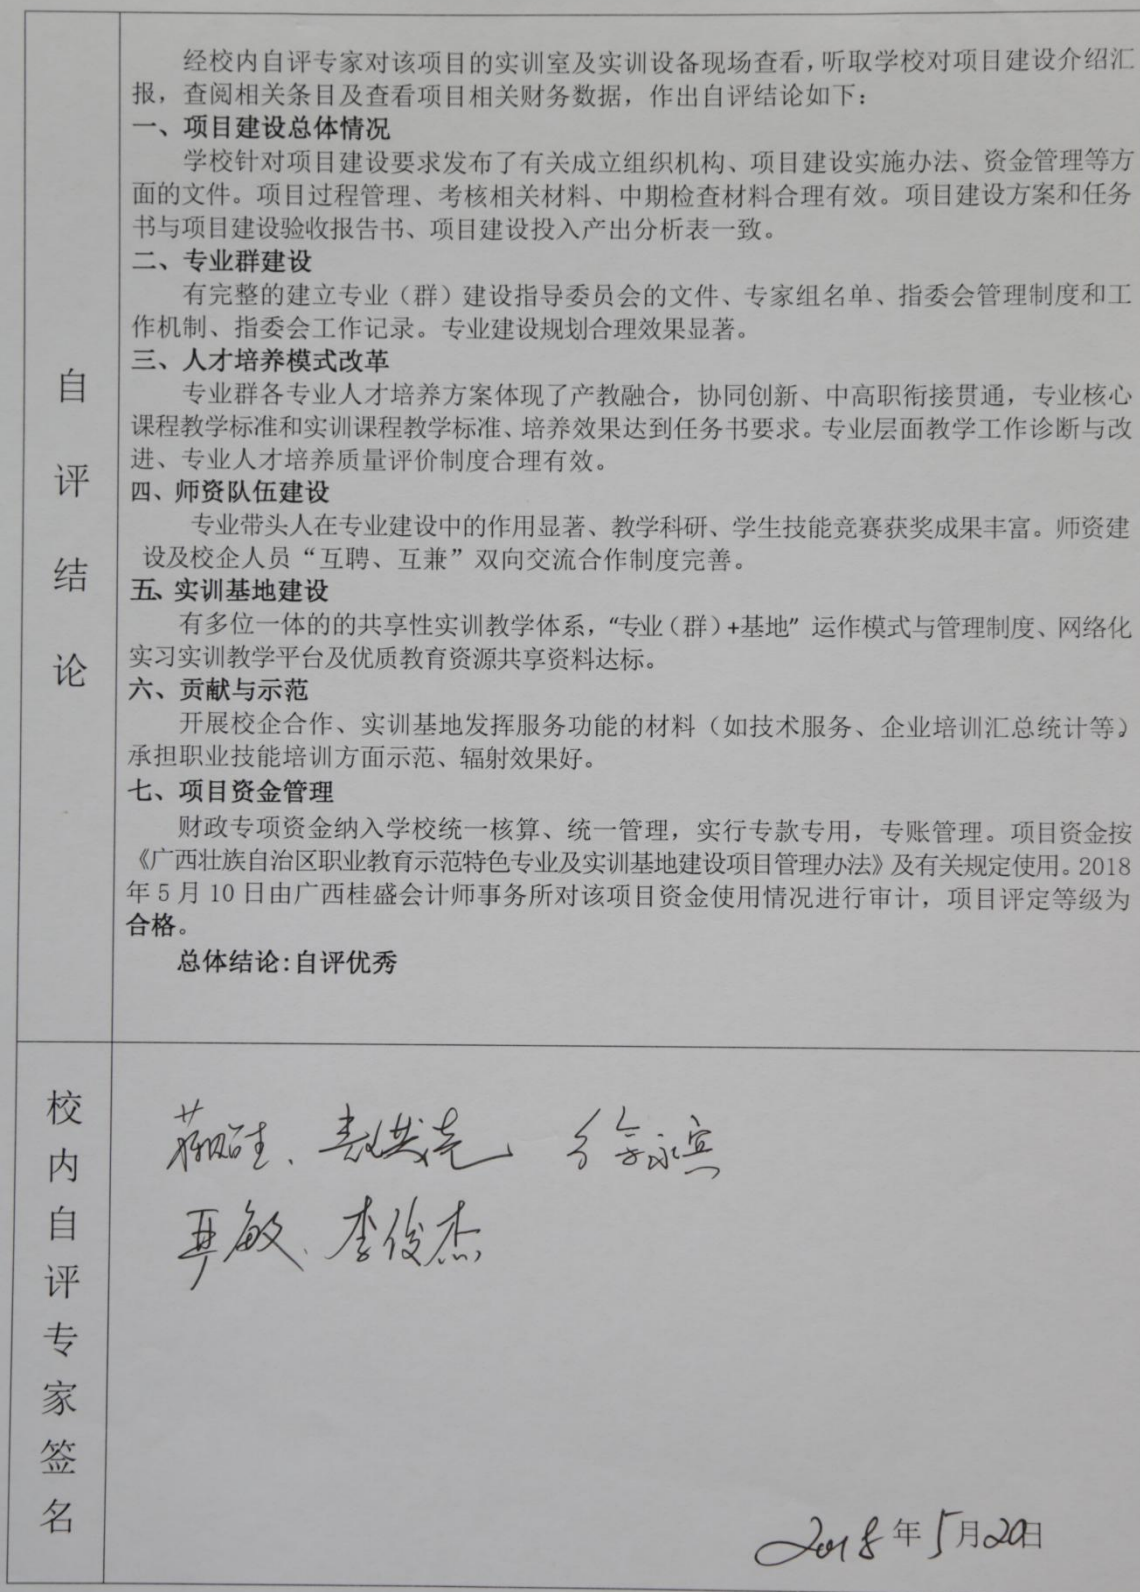 自评结论
经校内自评专家对该项目的实训室及实训设备现场查看，听取学校对项目建设介绍汇
报，查阅相关条目及查看项目相关财务数据，作出自评结论如下：
一、项目建设总体情况
学校针对项目建设要求发布了有关成立组织机构、项目建设实施办法、资金管理等方
面的文件。项目过程管理、考核相关材料、中期检查材料合理有效。项目建设方案和任务
书与项目建设验收报告书、项目建设投入产出分析表一致。
二、专业群建设
有完整的建立专业（群）建设指导委员会的文件、专家组名单、指委会管理制度和工
作机制、指委会工作记录。专业建设规划合理效果显著。
三、人才培养模式改革
专业群各专业人才培养方案体现了产教融合，协同创新、中高职衔接贯通，专业核心
课程教学标准和实训课程教学标准、培养效果达到任务书要求。专业层面教学工作诊断与改
进、专业人才培养质量评价制度合理有效。
四、师资队伍建设
专业带头人在专业建设中的作用显著、教学科研、学生技能竞赛获奖成果丰富。师资建
设及校企人员“互聘、互兼”双向交流合作制度完善。
五、实训基地建设
有多位一体的的共享性实训教学体系，“专业（群）+基地” 运作模式与管理制度、网络化
实习实训教学平台及优质教育资源共享资料达标。
六、贡献与示范
开展校企合作、实训基地发挥服务功能的材料（如技术服务、企业培训汇总统计等）
承担职业技能培训方面示范、辐射效果好。
七、项目资金管理
财政专项资金纳入学校统一核算、统一管理，实行专款专用，专账管理。项目资金按
《广西壮族自治区职业教育示范特色专业及实训基地建设项目管理办法》及有关规定使用。2018
年 5 月 10 日由广西桂盛会计师事务所对该项目资金使用情况进行审计，项目评定等级为
合格。
总体结论：自评优秀
校内自评专家签名
徐永宾
李俊杰
2018年5月20日